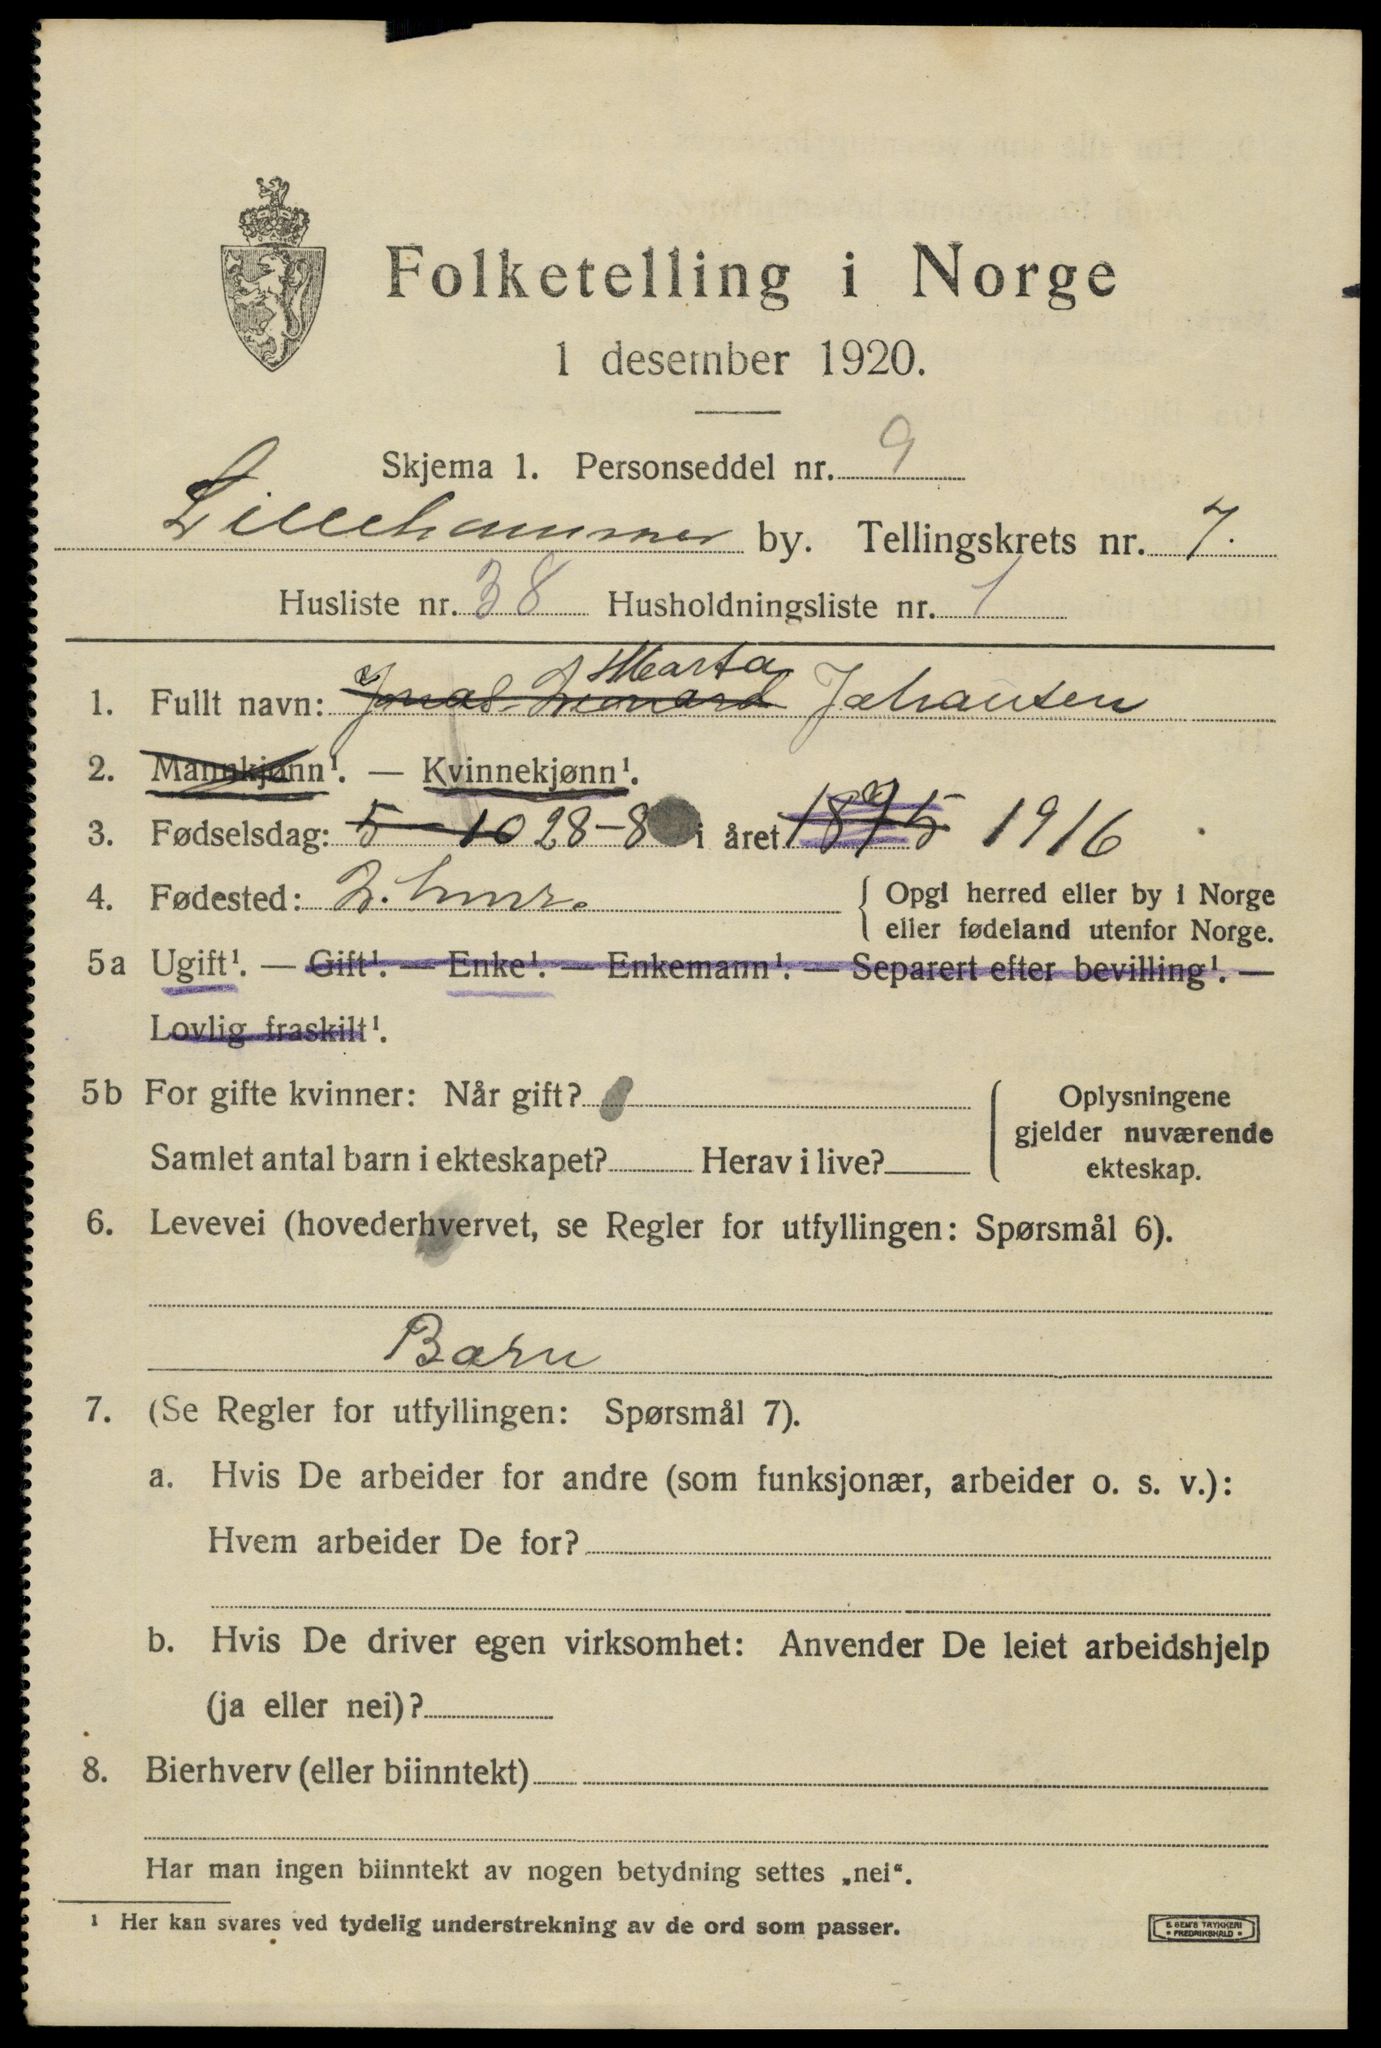 Folketelling i Norge
1 desember 1920.
Skjema 1. Personseddel nr. 9
Lillehammer by. Tellingskrets nr. 7.
Husliste nr. 38 Husholdningsliste nr. 1
Marta
1. Fullt navn: Jonas Leonard Johansen
2. Mannkjønn¹. — Kvinnekjønn¹.
3. Fødselsdag: 5 - 10 28-8 i året 1875 1916
4. Fødested: L.hmr. { Opgi herred eller by i Norge
eller fødeland utenfor Norge.
5a Ugift¹. — Gift¹. — Enke¹. — Enkemann¹. — Separert efter bevilling¹. —
Lovlig fraskilt¹.
5b For gifte kvinner: Når gift?
Samlet antal barn i ekteskapet? Herav i live?
Oplysningene
gjelder nuværende
ekteskap.
6. Levevei (hovederhvervet, se Regler for utfyllingen: Spørsmål 6).
Barn
7. (Se Regler for utfyllingen: Spørsmål 7).
a. Hvis De arbeider for andre (som funksjonær, arbeider o. s. v.):
Hvem arbeider De for?
b. Hvis De driver egen virksomhet: Anvender De leiet arbeidshjelp
(ja eller nei)?
8. Bierhverv (eller biinntekt)
Har man ingen biinntekt av nogen betydning settes „nei“.
¹ Her kan svares ved tydelig understrekning av de ord som passer.
E. SEM'S TRYKKERI
• FREDRIKSHALD •